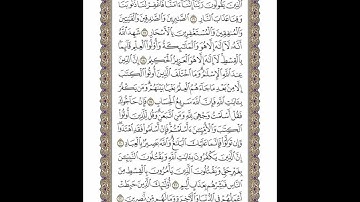 الَّذِينَ يَقُولُونَ رَبَّنَا إِنَّنَا ءَامَنَّا فَاغْفِرْ لَنَا ذُنُوبَنَا
وَقِنَا عَذَابَ النَّارِ ۝ الصَّٰبِرِينَ وَالصَّٰدِقِينَ وَالْقَٰنِتِينَ
وَالْمُنفِقِينَ وَالْمُسْتَغْفِرِينَ بِالْأَسْحَارِ ۝ شَهِدَ اللَّهُ
أَنَّهُ لَا إِلَٰهَ إِلَّا هُوَ وَالْمَلَٰٓئِكَةُ وَأُوْلُوا الْعِلْمِ قَآئِمًا
بِالْقِسْطِ لَا إِلَٰهَ إِلَّا هُوَ الْعَزِيزُ الْحَكِيمُ ۝ إِنَّ الدِّينَ
عِندَ اللَّهِ الْإِسْلَٰمُ وَمَا اخْتَلَفَ الَّذِينَ أُوتُوا الْكِتَٰبَ
إِلَّا مِنۢ بَعْدِ مَا جَآءَهُمُ الْعِلْمُ بَغْيًۢا بَيْنَهُمْ وَمَن يَكْفُرْ
بِـَٔايَٰتِ اللَّهِ فَإِنَّ اللَّهَ سَرِيعُ الْحِسَابِ ۝ فَإِنْ حَآجُّوكَ
فَقُلْ أَسْلَمْتُ وَجْهِيَ لِلَّهِ وَمَنِ اتَّبَعَنِ وَقُل لِّلَّذِينَ أُوتُوا
الْكِتَٰبَ وَالْأُمِّيِّـۧنَ ءَأَسْلَمْتُمْ فَإِنْ أَسْلَمُوا فَقَدِ اهْتَدَوا
وَّإِن تَوَلَّوْا فَإِنَّمَا عَلَيْكَ الْبَلَٰغُ وَاللَّهُ بَصِيرٌۢ بِالْعِبَادِ ۝
إِنَّ الَّذِينَ يَكْفُرُونَ بِـَٔايَٰتِ اللَّهِ وَيَقْتُلُونَ النَّبِيِّـۧنَ
بِغَيْرِ حَقٍّ وَيَقْتُلُونَ الَّذِينَ يَأْمُرُونَ بِالْقِسْطِ مِنَ
النَّاسِ فَبَشِّرْهُم بِعَذَابٍ أَلِيمٍ ۝ أُوْلَٰٓئِكَ الَّذِينَ حَبِطَتْ
أَعْمَٰلُهُمْ فِي الدُّنْيَا وَالْءَاخِرَةِ وَمَا لَهُم مِّن نَّٰصِرِينَ ۝